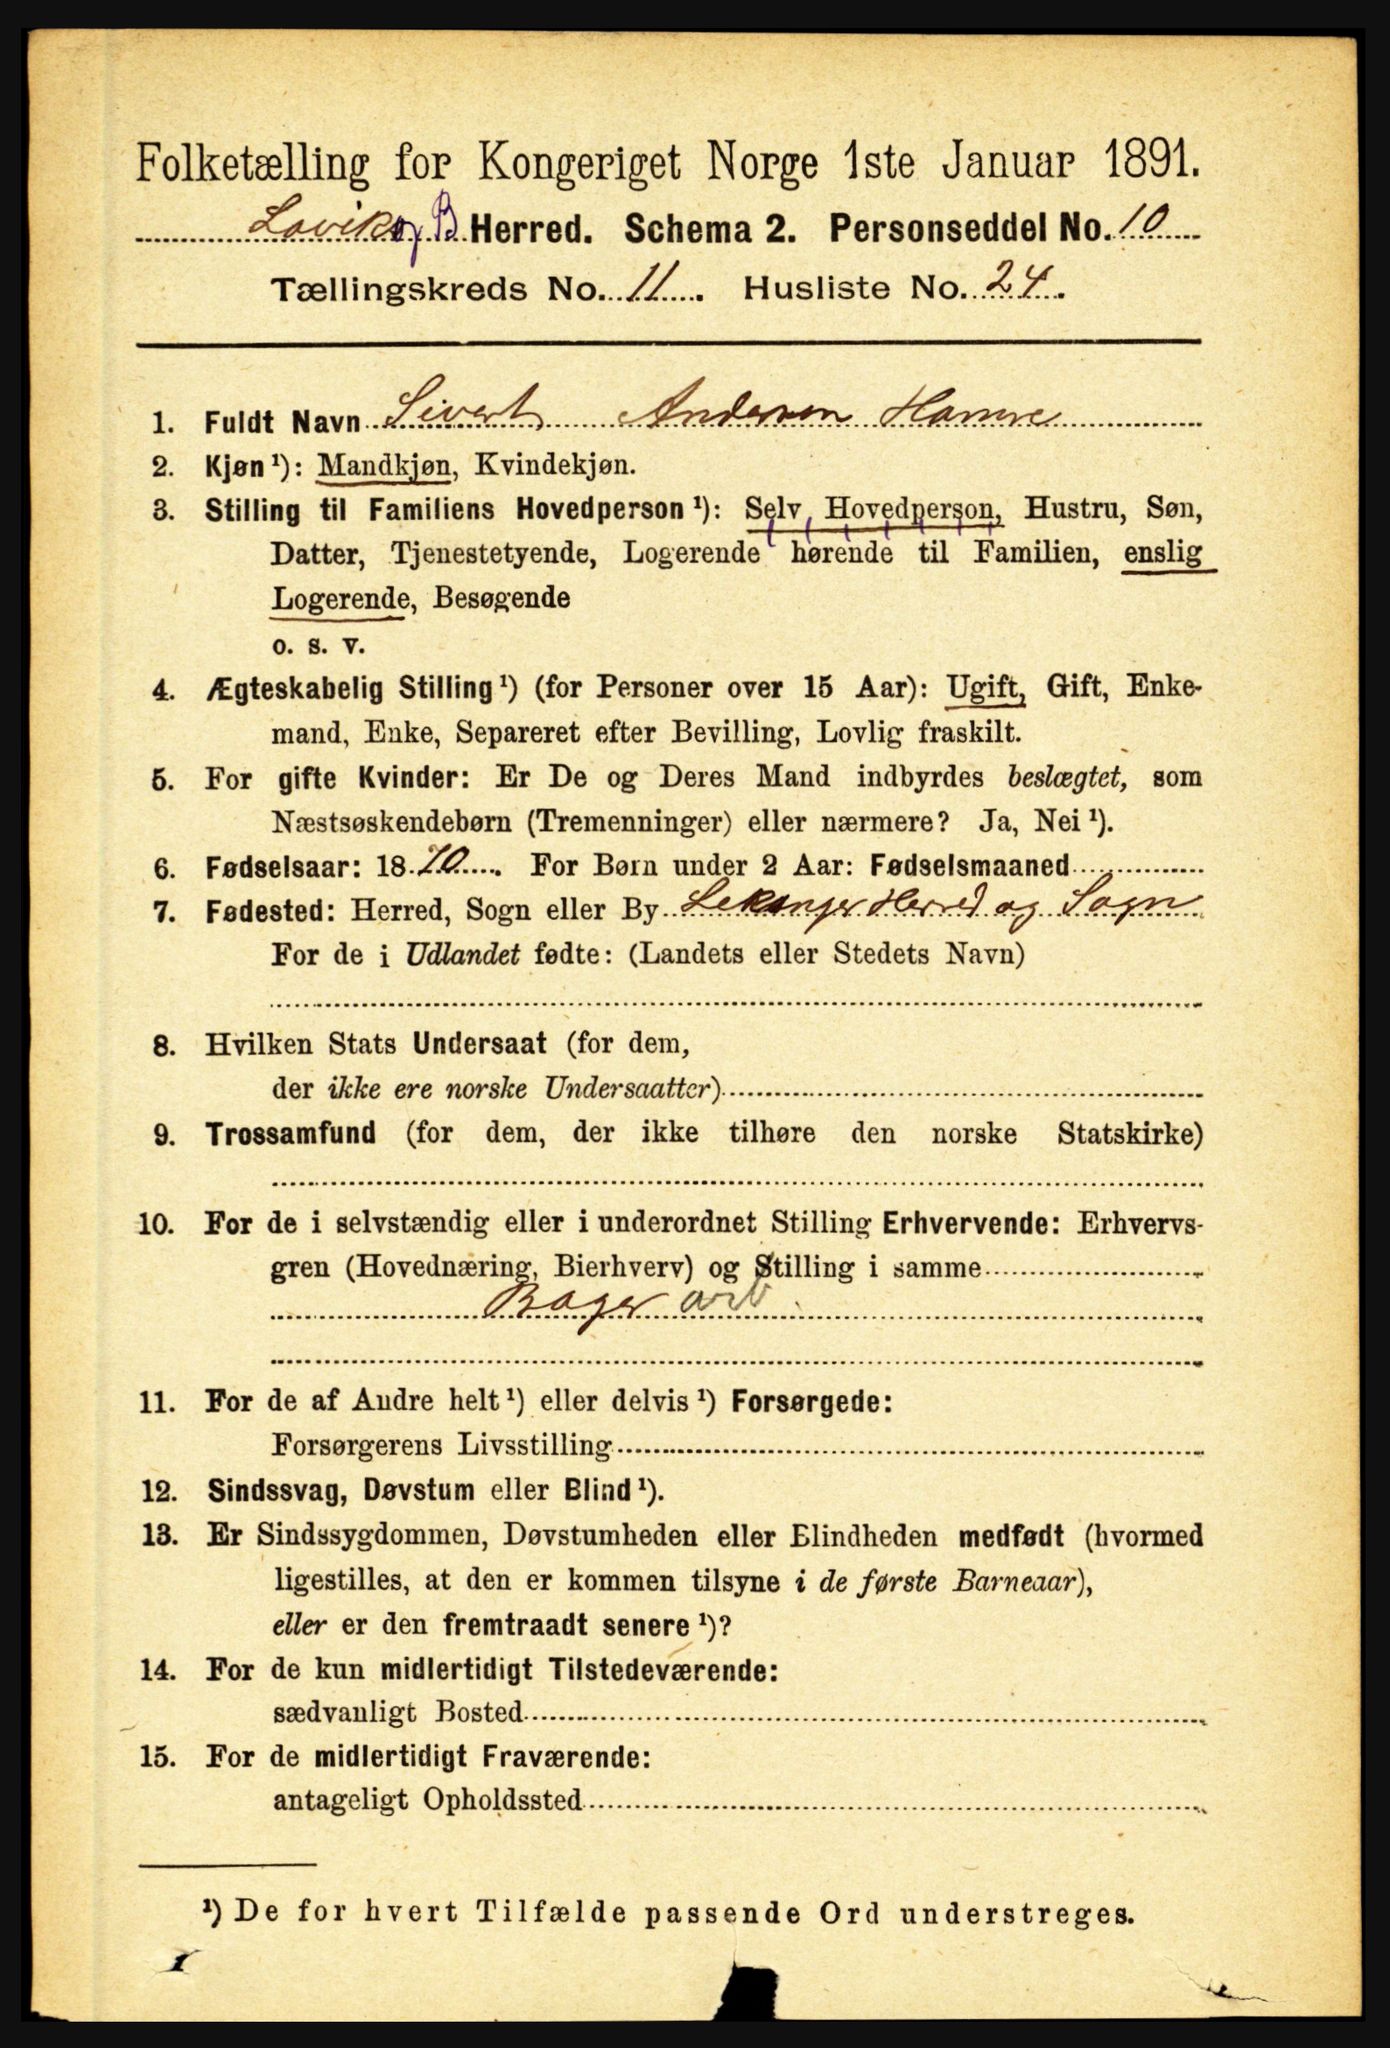 Folketælling for Kongeriget Norge 1ste Januar 1891.
Lavik og B Herred. Schema 2. Personseddel No. 10
Tællingskreds No. 11. Husliste No. 24.
1. Fuldt Navn Sivert Andersen Hamre
2. Kjøn ¹): Mandkjøn, Kvindekjøn.
3. Stilling til Familiens Hovedperson ¹): Selv Hovedperson, Hustru, Søn,
Datter, Tjenestetyende, Logerende hørende til Familien, enslig
Logerende, Besøgende
o. s. v.
4. Ægteskabelig Stilling ¹) (for Personer over 15 Aar): Ugift, Gift, Enke-
mand, Enke, Separeret efter Bevilling, Lovlig fraskilt.
5. For gifte Kvinder: Er De og Deres Mand indbyrdes beslægtet, som
Næstsøskendebørn (Tremenninger) eller nærmere? Ja, Nei ¹).
6. Fødselsaar: 1870. For Børn under 2 Aar: Fødselsmaaned
7. Fødested: Herred, Sogn eller By Lekanger Herred og Sogn
For de i Udlandet fødte: (Landets eller Stedets Navn)
8. Hvilken Stats Undersaat (for dem,
der ikke ere norske Undersaatter)
9. Trossamfund (for dem, der ikke tilhøre den norske Statskirke)
10. For de i selvstændig eller i underordnet Stilling Erhvervende: Erhvervs-
gren (Hovednæring, Bierhverv) og Stilling i samme
Bager arb.
11. For de af Andre helt ¹) eller delvis ¹) Forsørgede:
Forsørgerens Livsstilling
12. Sindssvag, Døvstum eller Blind ¹).
13. Er Sindssygdommen, Døvstumheden eller Blindheden medfødt (hvormed
ligestilles, at den er kommen tilsyne i de første Barneaar),
eller er den fremtraadt senere ¹)?
14. For de kun midlertidigt Tilstedeværende:
sædvanligt Bosted
15. For de midlertidigt Fraværende:
antageligt Opholdssted
¹) De for hvert Tilfælde passende Ord understreges.